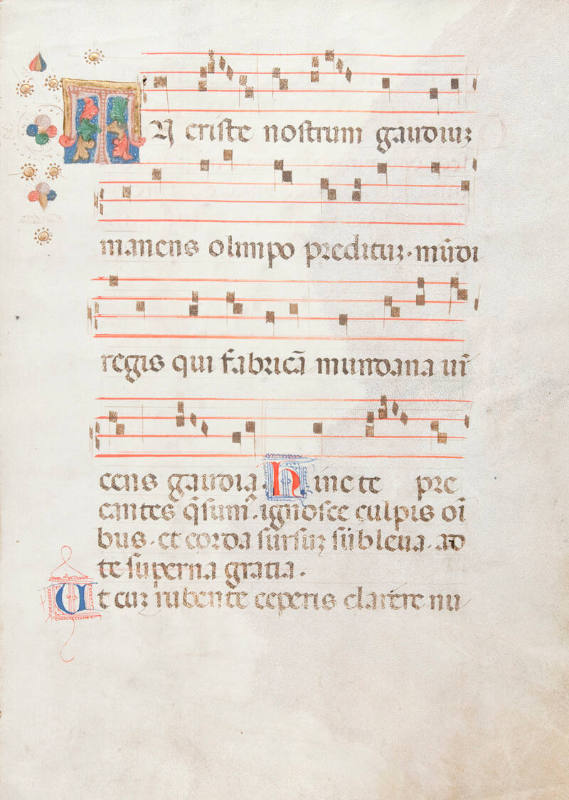 TU criste nostrum gaudiuz
manens olimpo preditu3. mūdi
regis qui fabricā mundana uī
cens gaudia. Hinc te pre
cantes q̄sum᷒. ignosce culpis oī
bus. et corda sursuz sūbleua. ad
te superna gratia.
Ut cuz rubente ceperis clarere nu